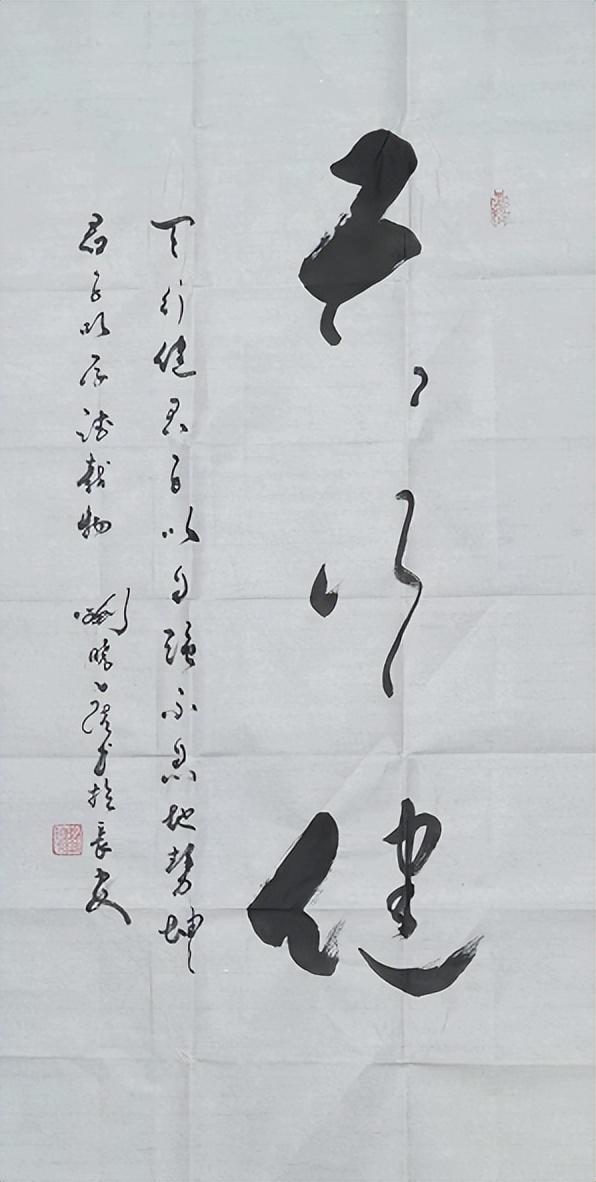 天行健
天行健君子以自强不息地势坤
君子以厚德载物
书于长安